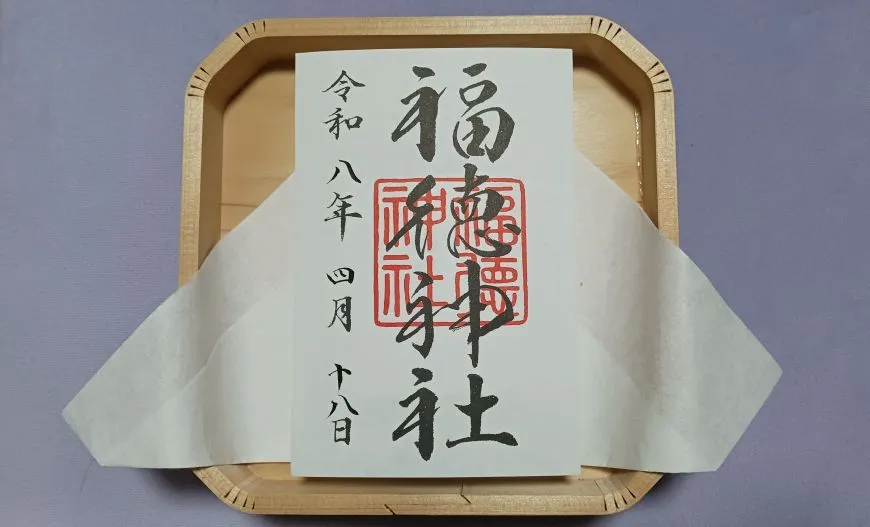 福徳神社
福德
神社
令和八年 四月 十八日